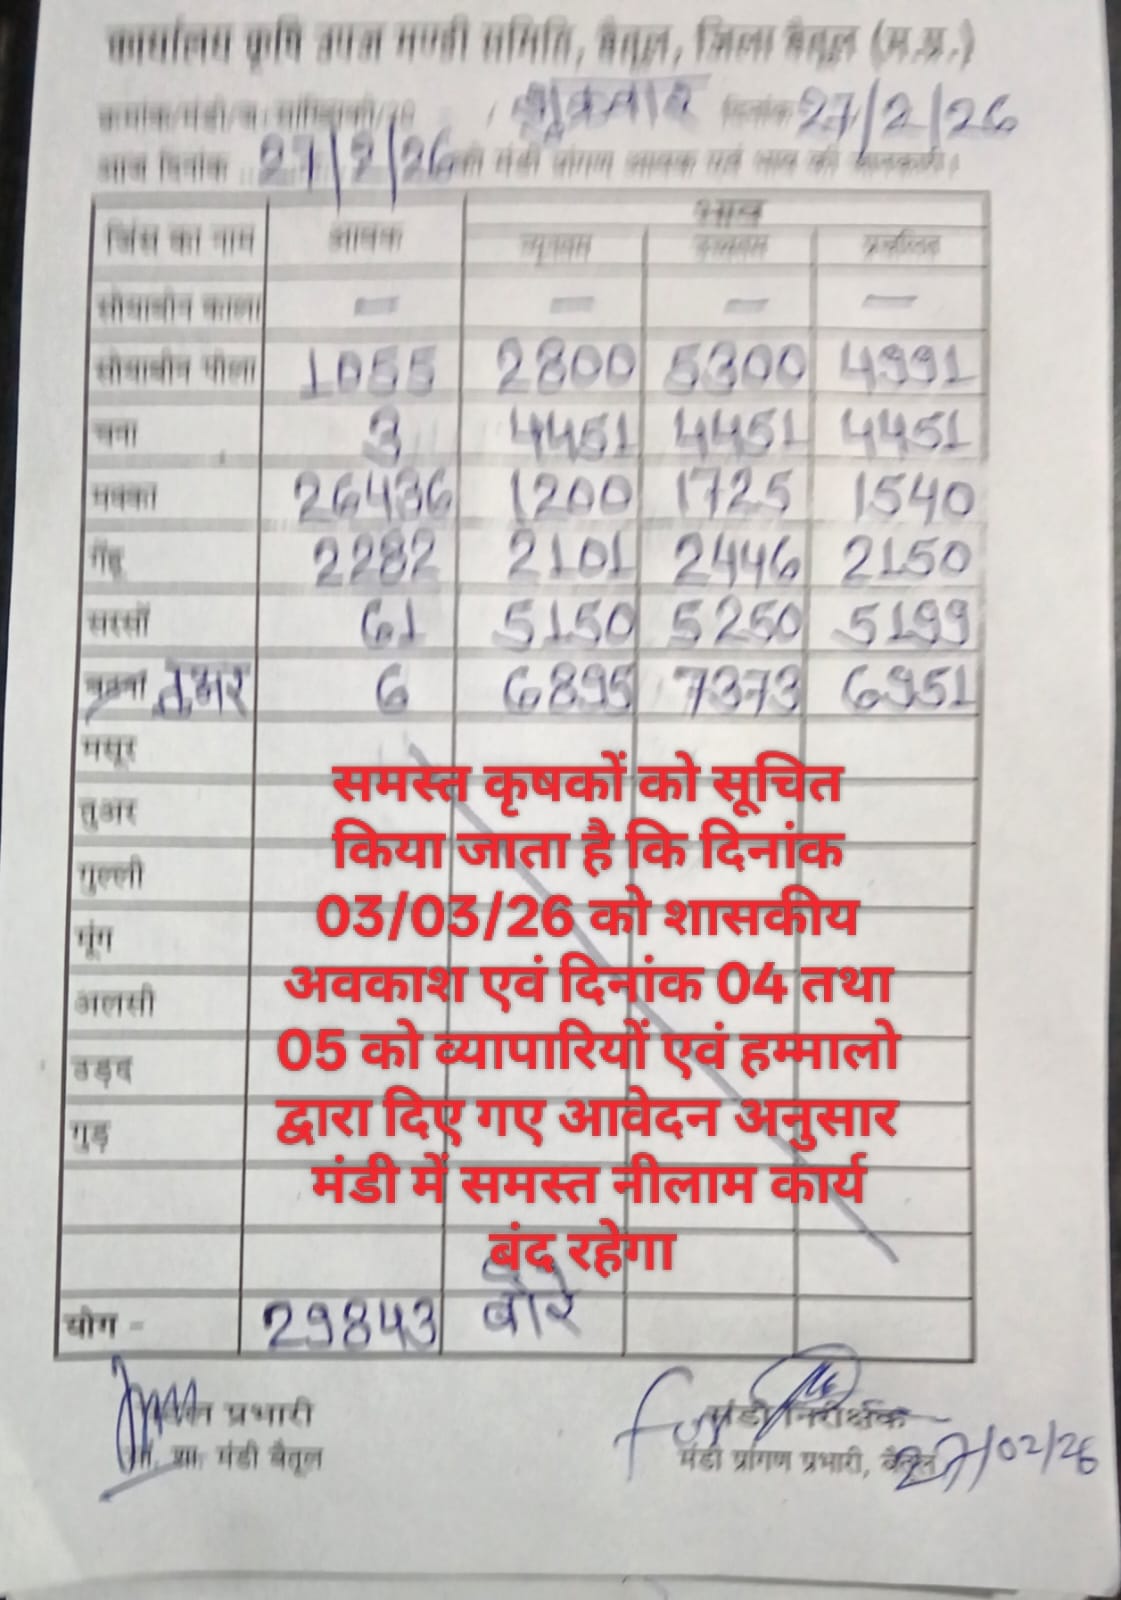 कार्यालय कृषि उपज मण्डी समिति, बैतूल, जिला बैतूल (म.प्र.)
क्रमांक/मंडी/ब./सांख्यिकी/20 / शुक्रवार दिनांक 27/2/26
आज दिनांक 27/2/26 की मंडी प्रांगण आवक एवं भाव की जानकारी।
जिंस का नाम आवक भाव
न्यूनतम उच्चतम प्रचलित
सोयाबीन काला — — — —
सोयाबीन पीला 1055 2800 5300 4991
चना 3 4451 4451 4451
मक्का 26436 1200 1725 1540
गेंहू 2282 2101 2446 2150
सरसों 61 5150 5250 5199
तुअर 6 6895 7373 6951
मसूर
तुअर
गुल्ली
मूंग
अलसी
उड़द
गुड़
समस्त कृषकों को सूचित
किया जाता है कि दिनांक
03/03/26 को शासकीय
अवकाश एवं दिनांक 04 तथा
05 को व्यापारियों एवं हम्मालो
द्वारा दिए गए आवेदन अनुसार
मंडी में समस्त नीलाम कार्य
बंद रहेगा
योग - 29843 बोरे
प्रभारी मंडी निरीक्षक
मंडी बैतूल मंडी प्रांगण प्रभारी, बैतूल
27/02/26